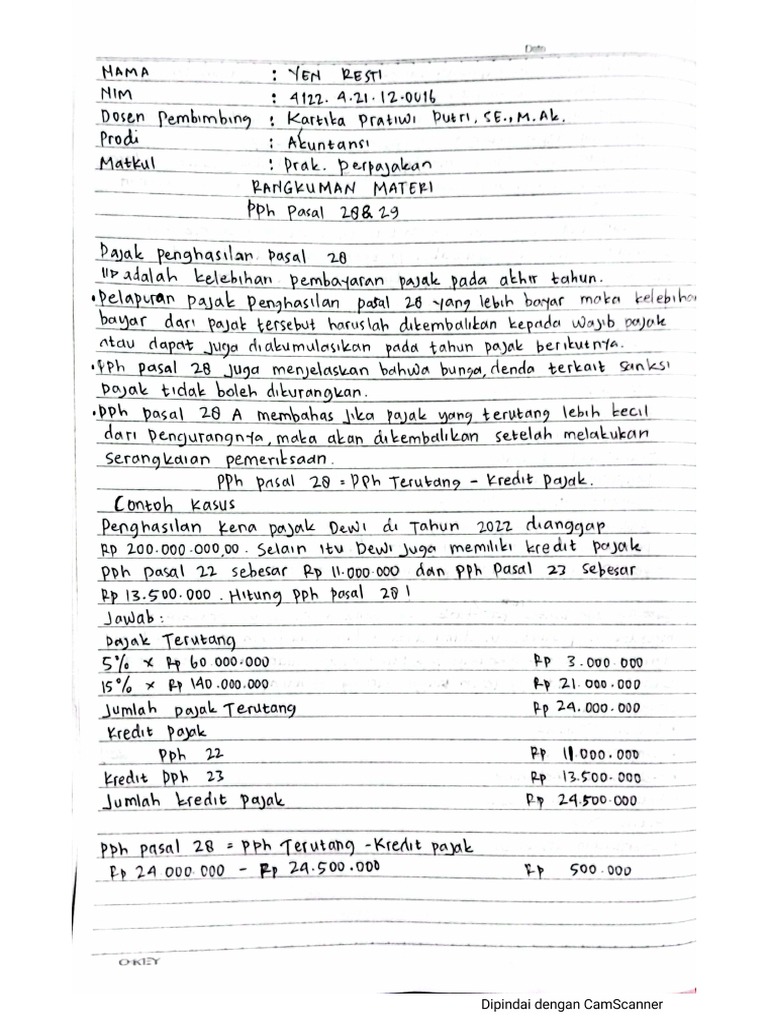 Date
NAMA : YEN RESTI
NIM : 4122.4.21.12.0016
Dosen Pembimbing : Kartika Pratiwi Putri, SE., M.Ak.
Prodi : Akuntansi
Matkul : Prak. Perpajakan
RANGKUMAN MATERI
PPh Pasal 28 & 29
Pajak penghasilan pasal 28
adalah kelebihan pembayaran pajak pada akhir tahun.
• Pelapuran pajak penghasilan pasal 28 yang lebih bayar maka kelebihan
bayar dari pajak tersebut haruslah dikembalikan kepada wajib pajak
atau dapat juga diakumulasikan pada tahun pajak berikutnya.
• PPh pasal 28 juga menjelaskan bahwa bunga, denda terkait sanksi
pajak tidak boleh dikurangkan.
• PPh pasal 28 A membahas jika pajak yang terutang lebih kecil
dari pengurangnya, maka akan dikembalikan setelah melakukan
serangkaian pemeriksaan.
PPh pasal 28 = PPh Terutang - Kredit Pajak.
Contoh Kasus
Penghasilan kena pajak Dewi di Tahun 2022 dianggap
Rp 200.000.000,00. Selain itu Dewi juga memiliki kredit pajak
PPh Pasal 22 sebesar Rp 11.000.000 dan PPh Pasal 23 sebesar
Rp 13.500.000. Hitung PPh pasal 28!
Jawab:
Pajak Terutang
5% x Rp 60.000.000 Rp 3.000.000
15% x Rp 140.000.000 Rp 21.000.000
Jumlah pajak Terutang Rp 24.000.000
Kredit Pajak
PPh 22 Rp 11.000.000
Kredit PPh 23 Rp 13.500.000
Jumlah kredit pajak Rp 24.500.000
PPh pasal 28 = PPh Terutang - Kredit pajak
Rp 24.000.000 - Rp 24.500.000 Rp 500.000
O-KEY
Dipindai dengan CamScanner